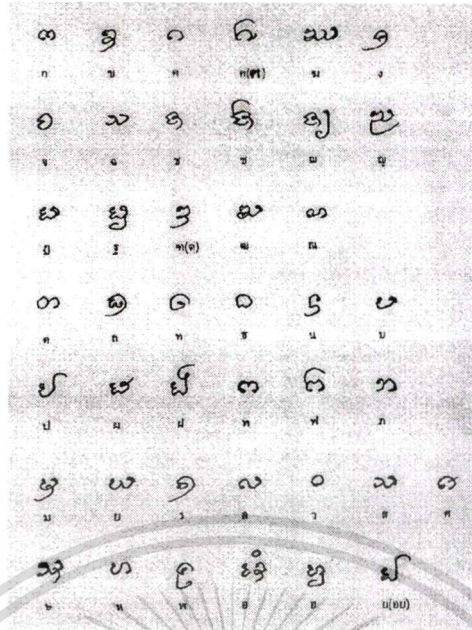 ᨠ ᨡ ᨣ ᨤ ᨥ ᨦ
ก ข ค ค(ฅ) ฆ ง
ᨧ ᨨ ᨩ ᨪ ᨫ ᨬ
จ ฉ ช ซ ฌ ญ
ᨭ ᨮ ᨯ ᨰ ᨱ
ฏ ฐ ฑ(ด) ฒ ณ
ᨲ ᨳ ᨴ ᨵ ᨶ ᨷ
ต ถ ท ธ น บ
ᨸ ᨹ ᨺ ᨻ ᨼ ᨽ
ป ผ ฝ พ ฟ ภ
ᨾ ᨿ ᩁ ᩃ ᩅ ᩈ ᩆ
ม ย ร ล ว ส ศ
ᩇ ᩉ ᩊ ᩋ ᩌ ᩀ
ษ ห ฬ อ ฮ ย(อย)